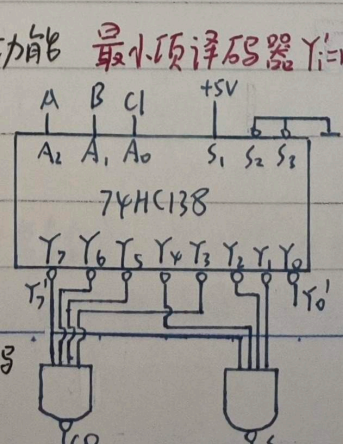 功能 最小项译码器 Yi'=m
A B CI +5V
A2 A1 A0 S1 S2 S3
74HC138
Y7 Y6 Y5 Y4 Y3 Y2 Y1 Y0
Y7' Y0'
码
CO